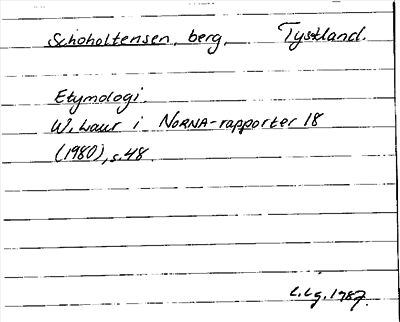 Schoholtensen, berg, Tyskland.
Etymologi.
W. Laur i NORNA-rapporter 18
(1980), s. 48.
L.Lg. 1987.